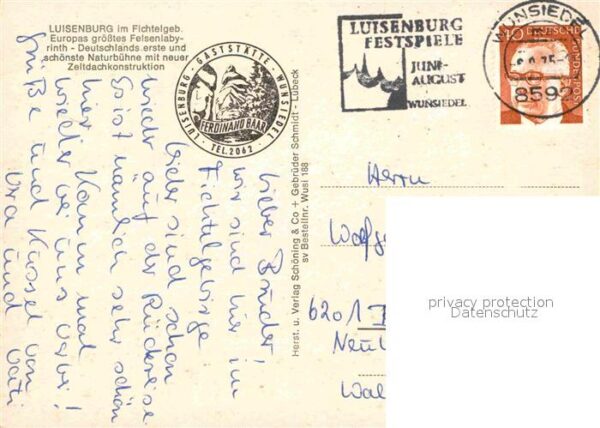 LUISENBURG im Fichtelgeb.
Europas größtes Felsenlaby-
rinth - Deutschlands erste und
schönste Naturbühne mit neuer
Zeltdachkonstruktion
LUISENBURG - GASTSTÄTTE - WUNSIEDEL
FERDINAND BAAR
· TEL. 2062 ·
LUISENBURG
FESTSPIELE
JUNI-
AUGUST
WUNSIEDEL
WUNSIEDEL
8592
10 DEUTSCHE BUNDESPOST
Herst. u. Verlag Schöning & Co + Gebrüder Schmidt - Lübeck
sv Bestellnr. Wusi 188
Lieber Bruder!
wir sind hier im
Fichtelgebirge
leider sind schon
wieder auf der Rückreise
Es ist nämlich sehr schön
hier. Kamm mal
wieder bei uns vorbei!
Grüße und Küssel von
und Vati
Herrn
Wolfg
6201
Neu
Wal
privacy protection
Datenschutz